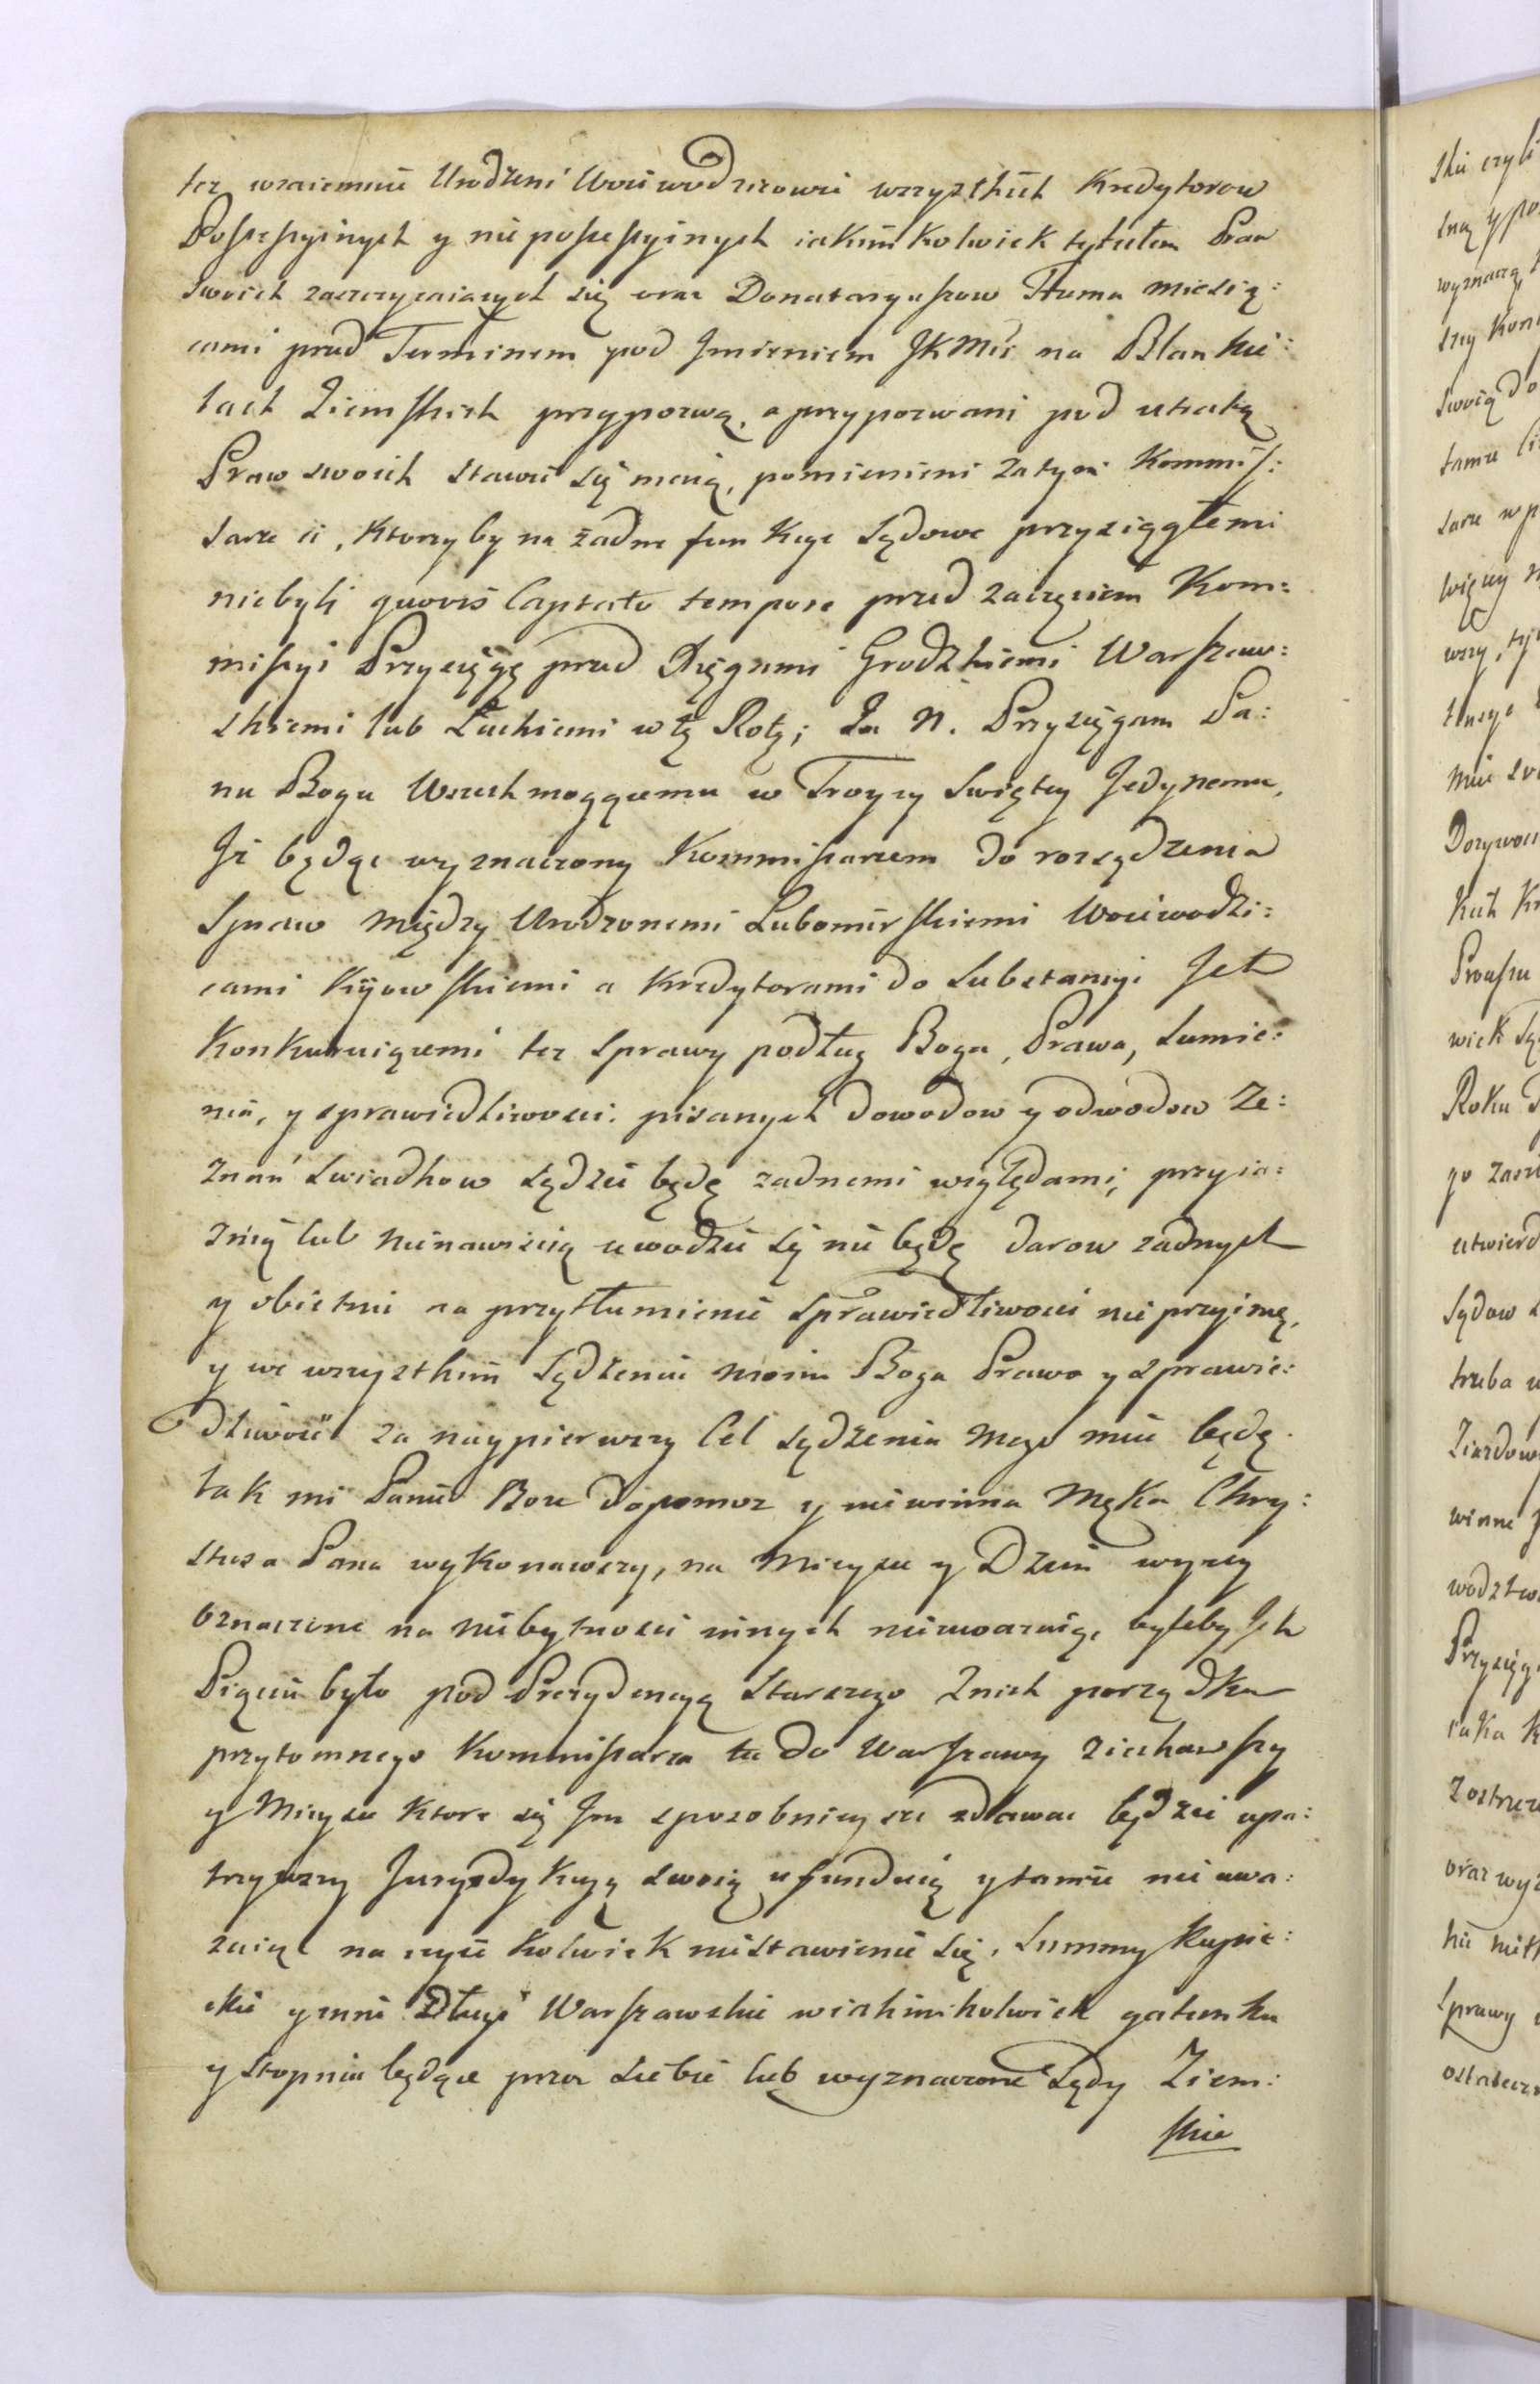 tez wzaiemnie Urodzeni Woiewodzicowie wszystkich Kredytorow
Possessyinych y nie possessyinych iakimkolwiek tytułem Praw
swoich zaszczycaiących się oraz Donataryuszow Trzema miesią:
cami przed Terminem pod Jmieniem JKMci na Blankie:
tach Ziemskich przypozwą, a przypozwani pod utratą
Praw swoich stawić się maią, pomienieni zatym Kommis:
sarze ci, ktorzy by na żadne funkcye sądowe przysięgłemi
niebyli quovis Captato tempore przed zaczęciem Kom:
missyi Przysięgę przed Xięgami Grodzkiemi Warszaw:
skiemi lub Łuckiemi w tę Rotę; Ja N. Przysięgam Pa:
nu Bogu Wszechmogącemu w Troycy Swiętey Jedynemu,
Jż będąc wyznaczony Kommissarzem do rozsądzenia
Spraw między Urodzonemi Lubomirskiemi Woiewodzi:
cami Kijowskiemi a Kredytorami do Substancyi Jch
Konkuruiącemi też sprawy podług Boga, Prawa, Sumie:
nia, y sprawiedliwosci. pisanych dowodow y odwodow Ze:
znań Swiadkow sądzić będę zadnemi względami, przyia:
znią lub nienawiscią uwodzić się nie będę darow zadnych
y obietnic na przytłumienie sprawiedliwosci nie przyimę,
y we wszystkim Sądzeniu moim Boga Prawo y sprawie:
dliwość za naypierwszy Cel sądzenia mego mieć będę.
tak mi Panie Boze dopomoz y niewinna Męka Chry:
stusa Pana wykonawszy, na Mieysce y Dzien wyzey
oznaczone na niebytnosci innych nieuwazaiąc byleby Jch
Pięciu było pod Prezydencyą Starszego z nich porządku
przytomnego Kommissarza tu do Warszawy ziechawszy
y Mieysce Ktore się Jm sposobnieysze zdawac będzie upa:
trzywszy Juryzdykcyą swoią ufunduią y tamże nie uwa:
zaiąc na czyie kolwiek niestawienie się, Summy kupie:
ckie y inne Długi Warszawskie w iakimkolwiek gatunku
y stopniu będące przez siebie lub wyznaczone Sądy Ziem:
skie